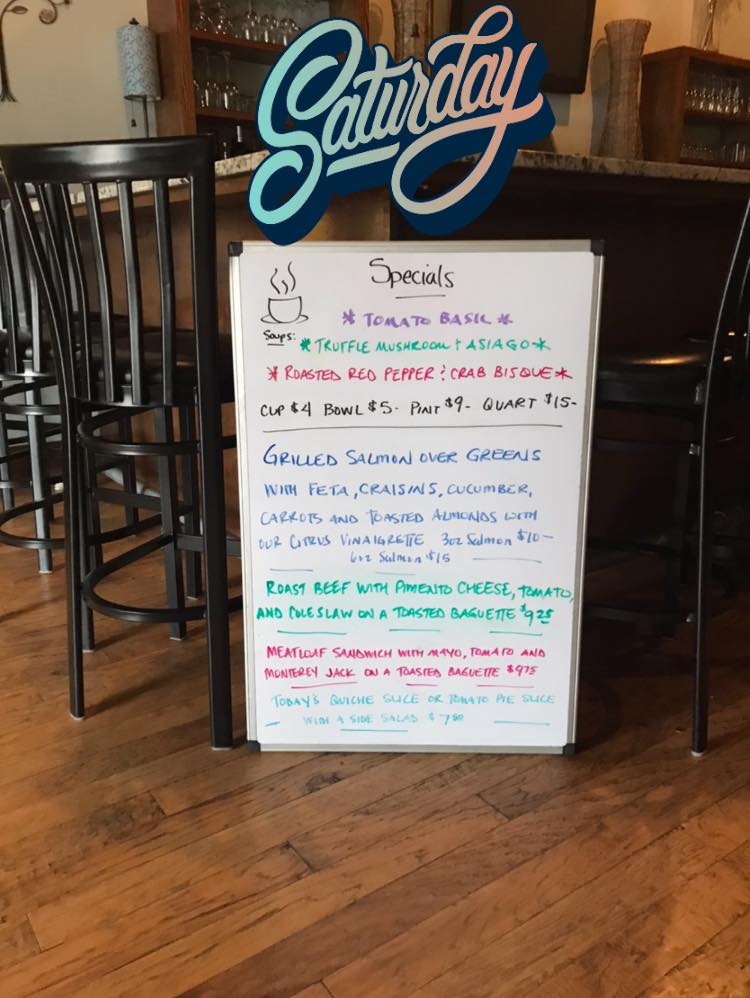 Saturday
Specials
* TOMATO BASIL *
Soups: * TRUFFLE MUSHROOM + ASIAGO *
* ROASTED RED PEPPER : CRAB BISQUE *
CUP $4 BOWL $5- PINT $9- QUART $15-
GRILLED SALMON OVER GREENS
WITH FETA, CRAISINS, CUCUMBER,
CARROTS AND TOASTED ALMONDS WITH
OUR CITRUS VINAIGRETTE 3oz Salmon $10-
6oz Salmon $15
ROAST BEEF WITH PIMENTO CHEESE, TOMATO,
AND COLESLAW ON A TOASTED BAGUETTE $9 25
MEATLOAF SANDWICH WITH MAYO, TOMATO AND
MONTEREY JACK ON A TOASTED BAGUETTE $9 75
TODAY'S QUICHE SLICE OR TOMATO PIE SLICE
WITH A SIDE SALAD $7